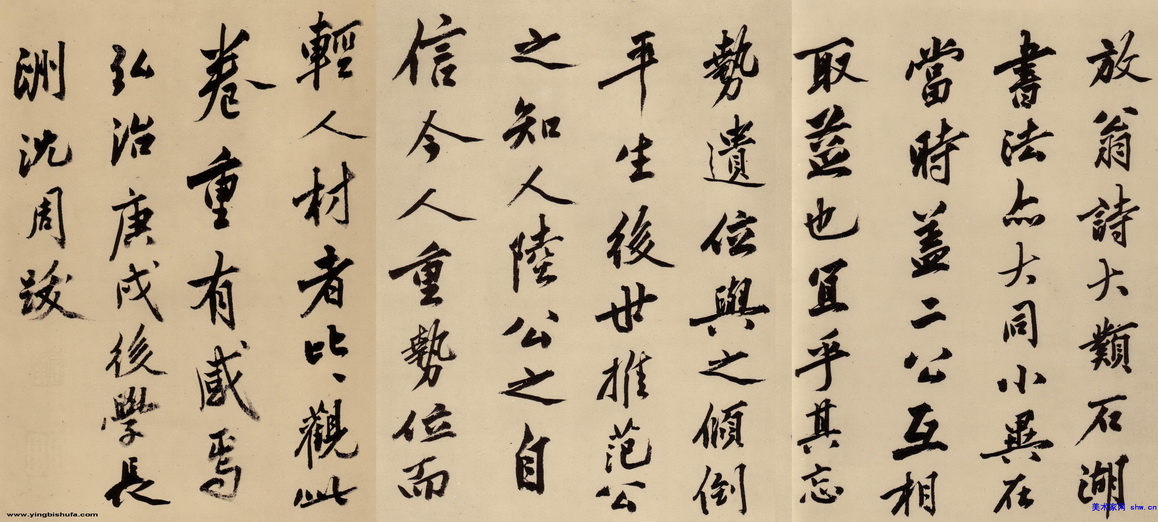 放翁詩大類石湖
書法亦大同小異在
當時蓋二公互相
取益也宜乎其忘
勢遺位與之傾倒
平生後世推范公
之知人陸公之自
信今人重勢位而
輕人材者比比觀此
卷重有感焉
弘治庚戌後學長
洲沈周跋
www.yingbishufa.com
美术家网 shw.cn